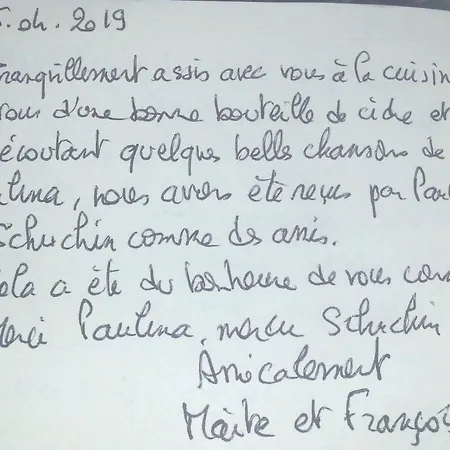 .04.2019
ranquillement assis avec vous à la cuisin
tour d'une bonne bouteille de cidre et
écoutant quelques belles chansons de
ulina, nous avons été reçus par Pau
Schuchin comme des amis.
ela a été du bonheur de vous conn
erci Paulina, merci Schuchin
Amicalement
Maïte et Franço